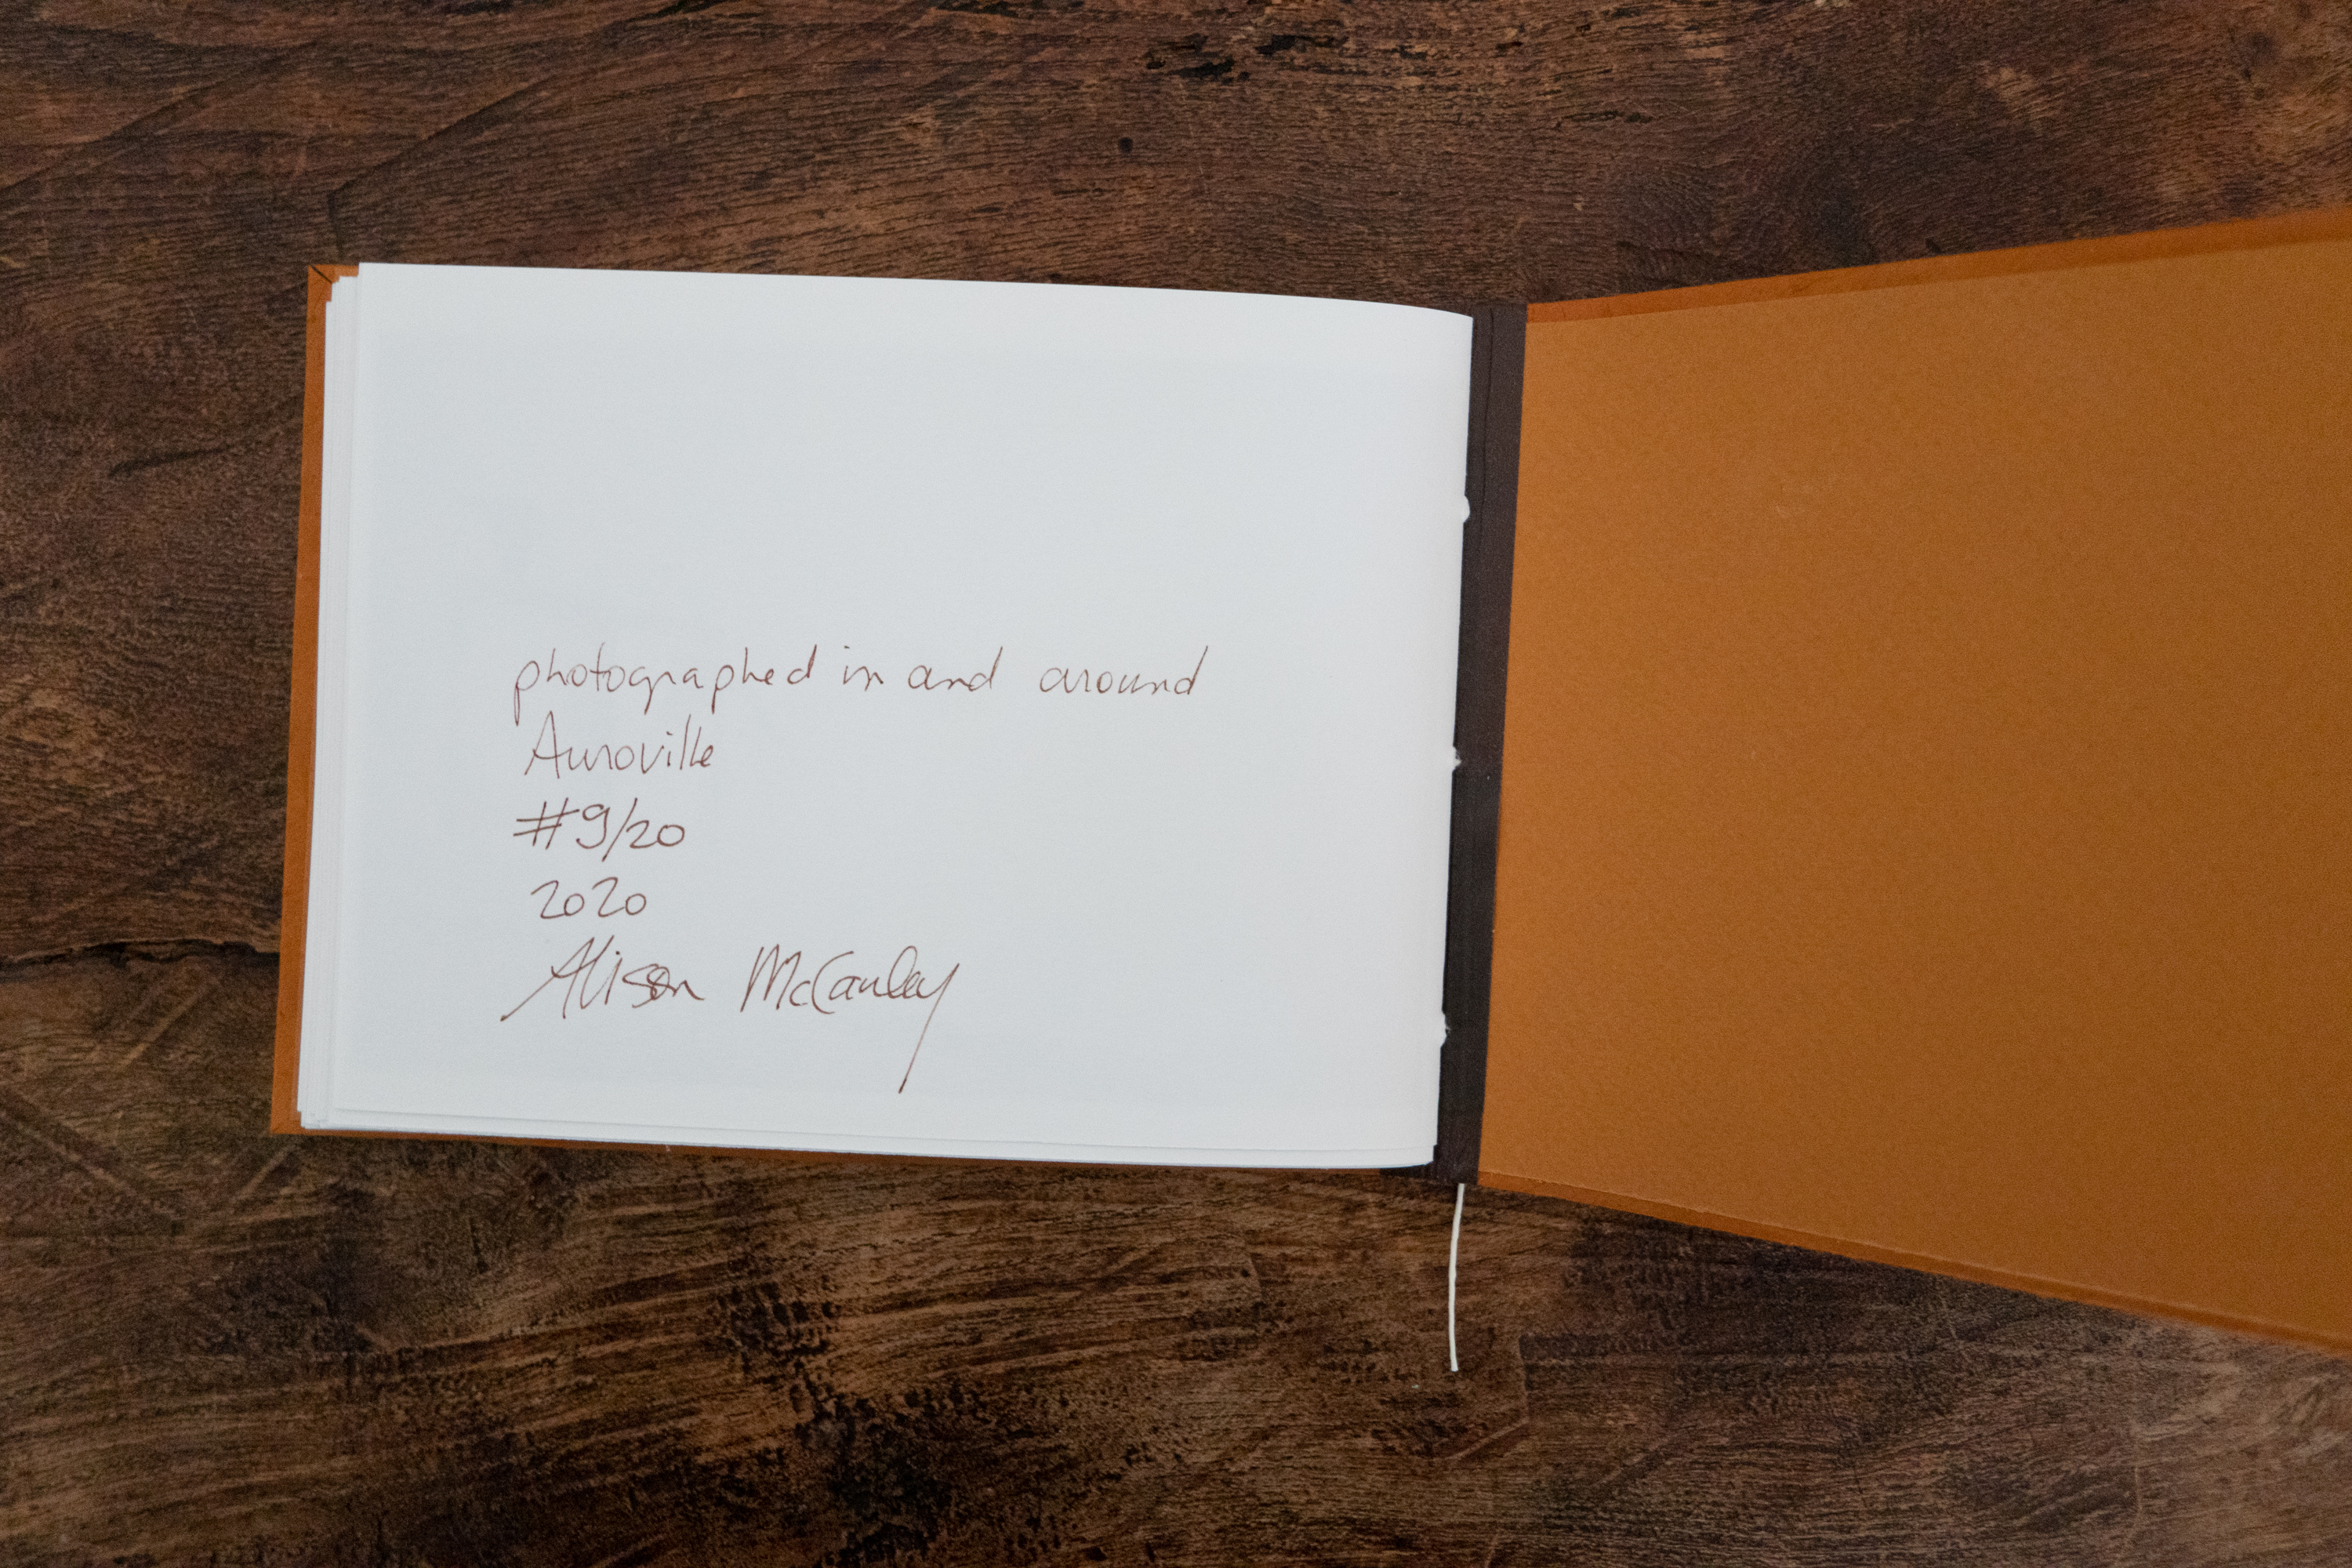 photographed in and around
Auroville
#9/20
2020
Alison McCauley